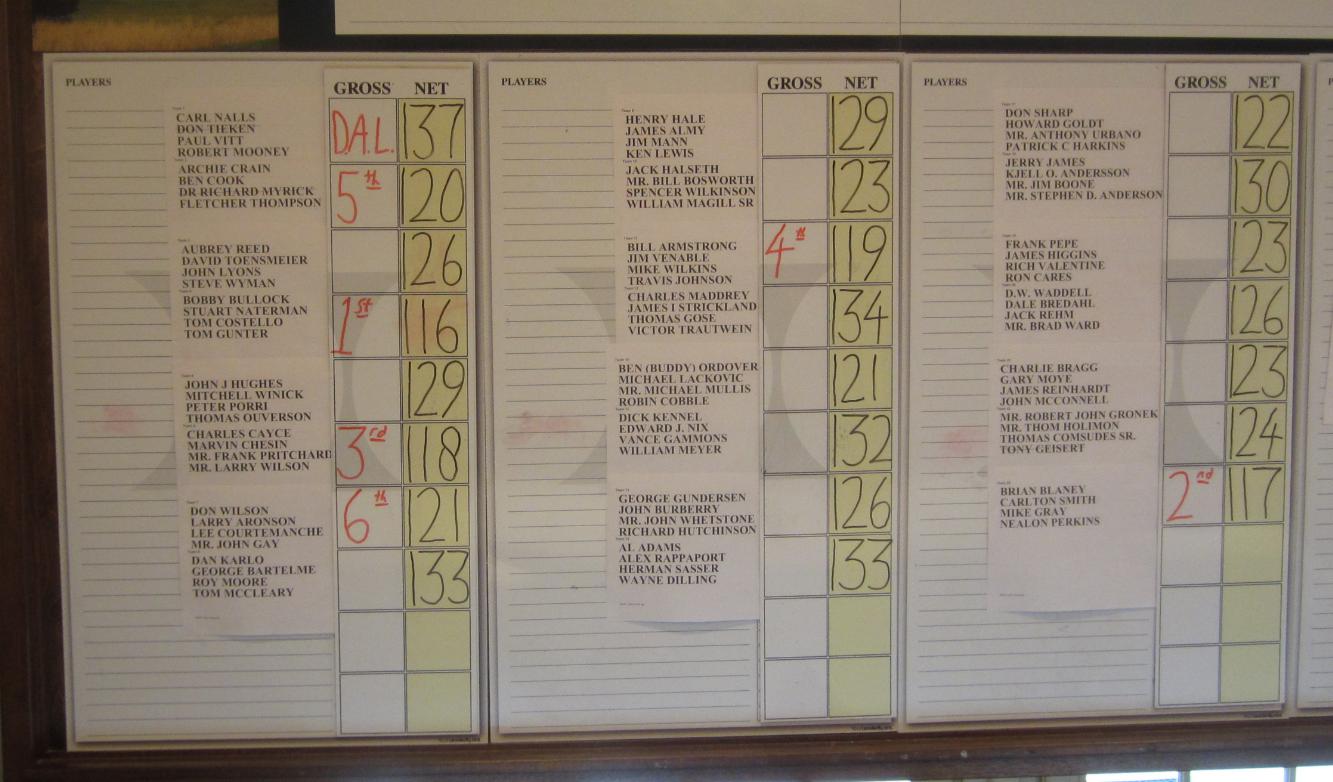 PLAYERS
GROSS NET
CARL NALLS
DON TIEKEN
PAUL VITT
ROBERT MOONEY
D.A.L. 137
ARCHIE CRAIN
BEN COOK
DR RICHARD MYRICK
FLETCHER THOMPSON
5th 120
AUBREY REED
DAVID TOENSMEIER
JOHN LYONS
STEVE WYMAN
126
BOBBY BULLOCK
STUART NATERMAN
TOM COSTELLO
TOM GUNTER
1st 116
JOHN J HUGHES
MITCHELL WINICK
PETER PORRI
THOMAS OUVERSON
129
CHARLES CAYCE
MARVIN CHESIN
MR. FRANK PRITCHARD
MR. LARRY WILSON
3rd 118
DON WILSON
LARRY ARONSON
LEE COURTEMANCHE
MR. JOHN GAY
6th 121
DAN KARLO
GEORGE BARTELME
ROY MOORE
TOM MCCLEARY
133
PLAYERS
GROSS NET
HENRY HALE
JAMES ALMY
JIM MANN
KEN LEWIS
129
JACK HALSETH
MR. BILL BOSWORTH
SPENCER WILKINSON
WILLIAM MAGILL SR
123
BILL ARMSTRONG
JIM VENABLE
MIKE WILKINS
TRAVIS JOHNSON
4th 119
CHARLES MADDREY
JAMES I STRICKLAND
THOMAS GOSE
VICTOR TRAUTWEIN
134
BEN (BUDDY) ORDOVER
MICHAEL LACKOVIC
MR. MICHAEL MULLIS
ROBIN COBBLE
121
DICK KENNEL
EDWARD J. NIX
VANCE GAMMONS
WILLIAM MEYER
132
GEORGE GUNDERSEN
JOHN BURBERRY
MR. JOHN WHETSTONE
RICHARD HUTCHINSON
126
AL ADAMS
ALEX RAPPAPORT
HERMAN SASSER
WAYNE DILLING
133
PLAYERS
GROSS NET
DON SHARP
HOWARD GOLDT
MR. ANTHONY URBANO
PATRICK C HARKINS
122
JERRY JAMES
KJELL O. ANDERSSON
MR. JIM BOONE
MR. STEPHEN D. ANDERSON
130
FRANK PEPE
JAMES HIGGINS
RICH VALENTINE
RON CARES
123
D.W. WADDELL
DALE BREDAHL
JACK REHM
MR. BRAD WARD
126
CHARLIE BRAGG
GARY MOYE
JAMES REINHARDT
JOHN MCCONNELL
123
MR. ROBERT JOHN GRONEK
MR. THOM HOLIMON
THOMAS COMSUDES SR.
TONY GEISERT
124
BRIAN BLANEY
CARLTON SMITH
MIKE GRAY
NEALON PERKINS
2nd 117